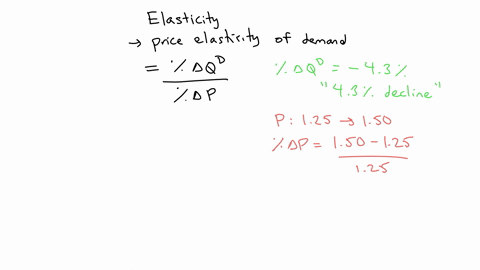 Elasticity
→ price elasticity of demand
= %ΔQᴰ / %ΔP
%ΔQᴰ = -4.3%
"4.3% decline"
P: 1.25 → 1.50
%ΔP = 1.50 - 1.25 / 1.25